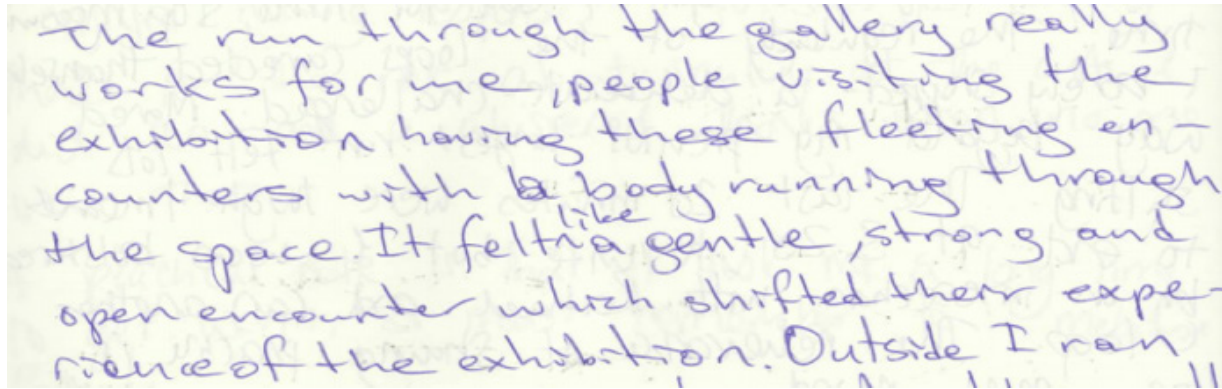 The run through the gallery really
works for me, people visiting the
exhibition having these fleeting en-
counters with a body running through
the space. It felt like a gentle, strong and
open encounter which shifted their expe-
rience of the exhibition. Outside I ran